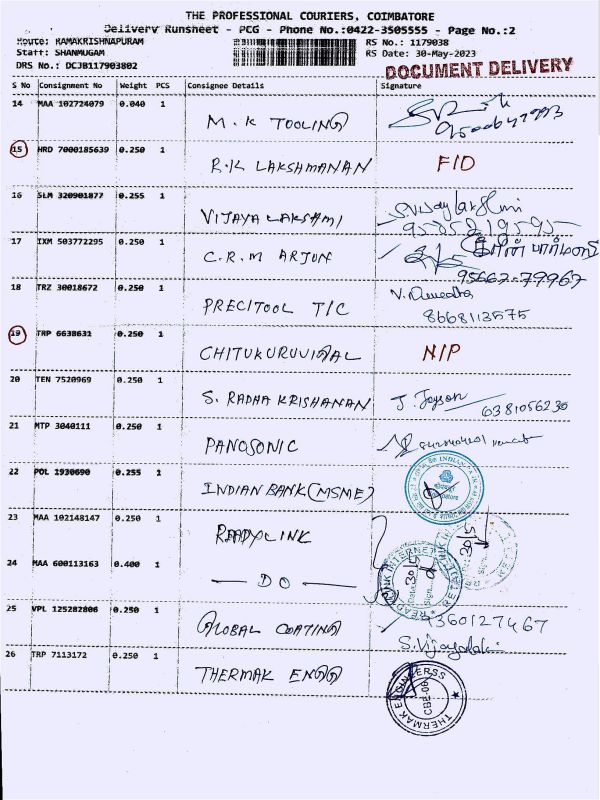 THE PROFESSIONAL COURIERS, COIMBATORE
Delivery Runsheet - PCG - Phone No.:0422-3505555 - Page No.:2
Route: RAMAKRISHNAPURAM RS No.: 1179038
Staff: SHANMUGAM RS Date: 30-May-2023
DRS No.: DCJB117903802 DOCUMENT DELIVERY
S No Consignment No Weight PCS Consignee Details Signature
14 MAA 102724079 0.040 1 M.K TOOLING
15 HRD 7000185639 0.250 1 R.K LAKSHMANAN FID
16 SLM 320901877 0.255 1 VIJAYA LAKSAMI S.Vijaylakshmi
17 IXM 503772295 0.250 1 C.R.M ARJUN
95667-79967
18 TRZ 30018672 0.250 1 PRECITOOL TIC
8668113575
19 TRP 6638631 0.250 1 CHITUKURUVIGAL NIP
20 TEN 7520969 0.250 1 S. RADHA KRISHANAN J. Jayson 6381056230
21 MTP 3040111 0.250 1 PANOSONIC
22 POL 1930690 0.255 1 INDIAN BANK (MSME)
23 MAA 102148147 0.250 1 READYLINK 30/5
24 MAA 600113163 0.400 1 — DO — 30/5
25 VPL 125282806 0.250 1 GLOBAL COATING 9360127467
26 TRP 7113172 0.250 1 THERMAK ENGG THERMAK ENGINEERSS CBE-06